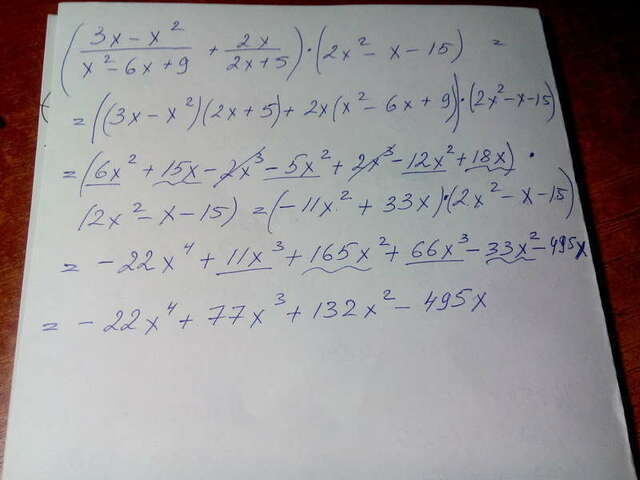 (3x - x² / x² - 6x + 9 + 2x / 2x + 5) · (2x² - x - 15) =
= ((3x - x²)(2x + 5) + 2x(x² - 6x + 9)) · (2x² - x - 15)
= (6x² + 15x - 2x³ - 5x² + 2x³ - 12x² + 18x) ·
(2x² - x - 15) = (-11x² + 33x) · (2x² - x - 15)
= -22x⁴ + 11x³ + 165x² + 66x³ - 33x² - 495x
= -22x⁴ + 77x³ + 132x² - 495x